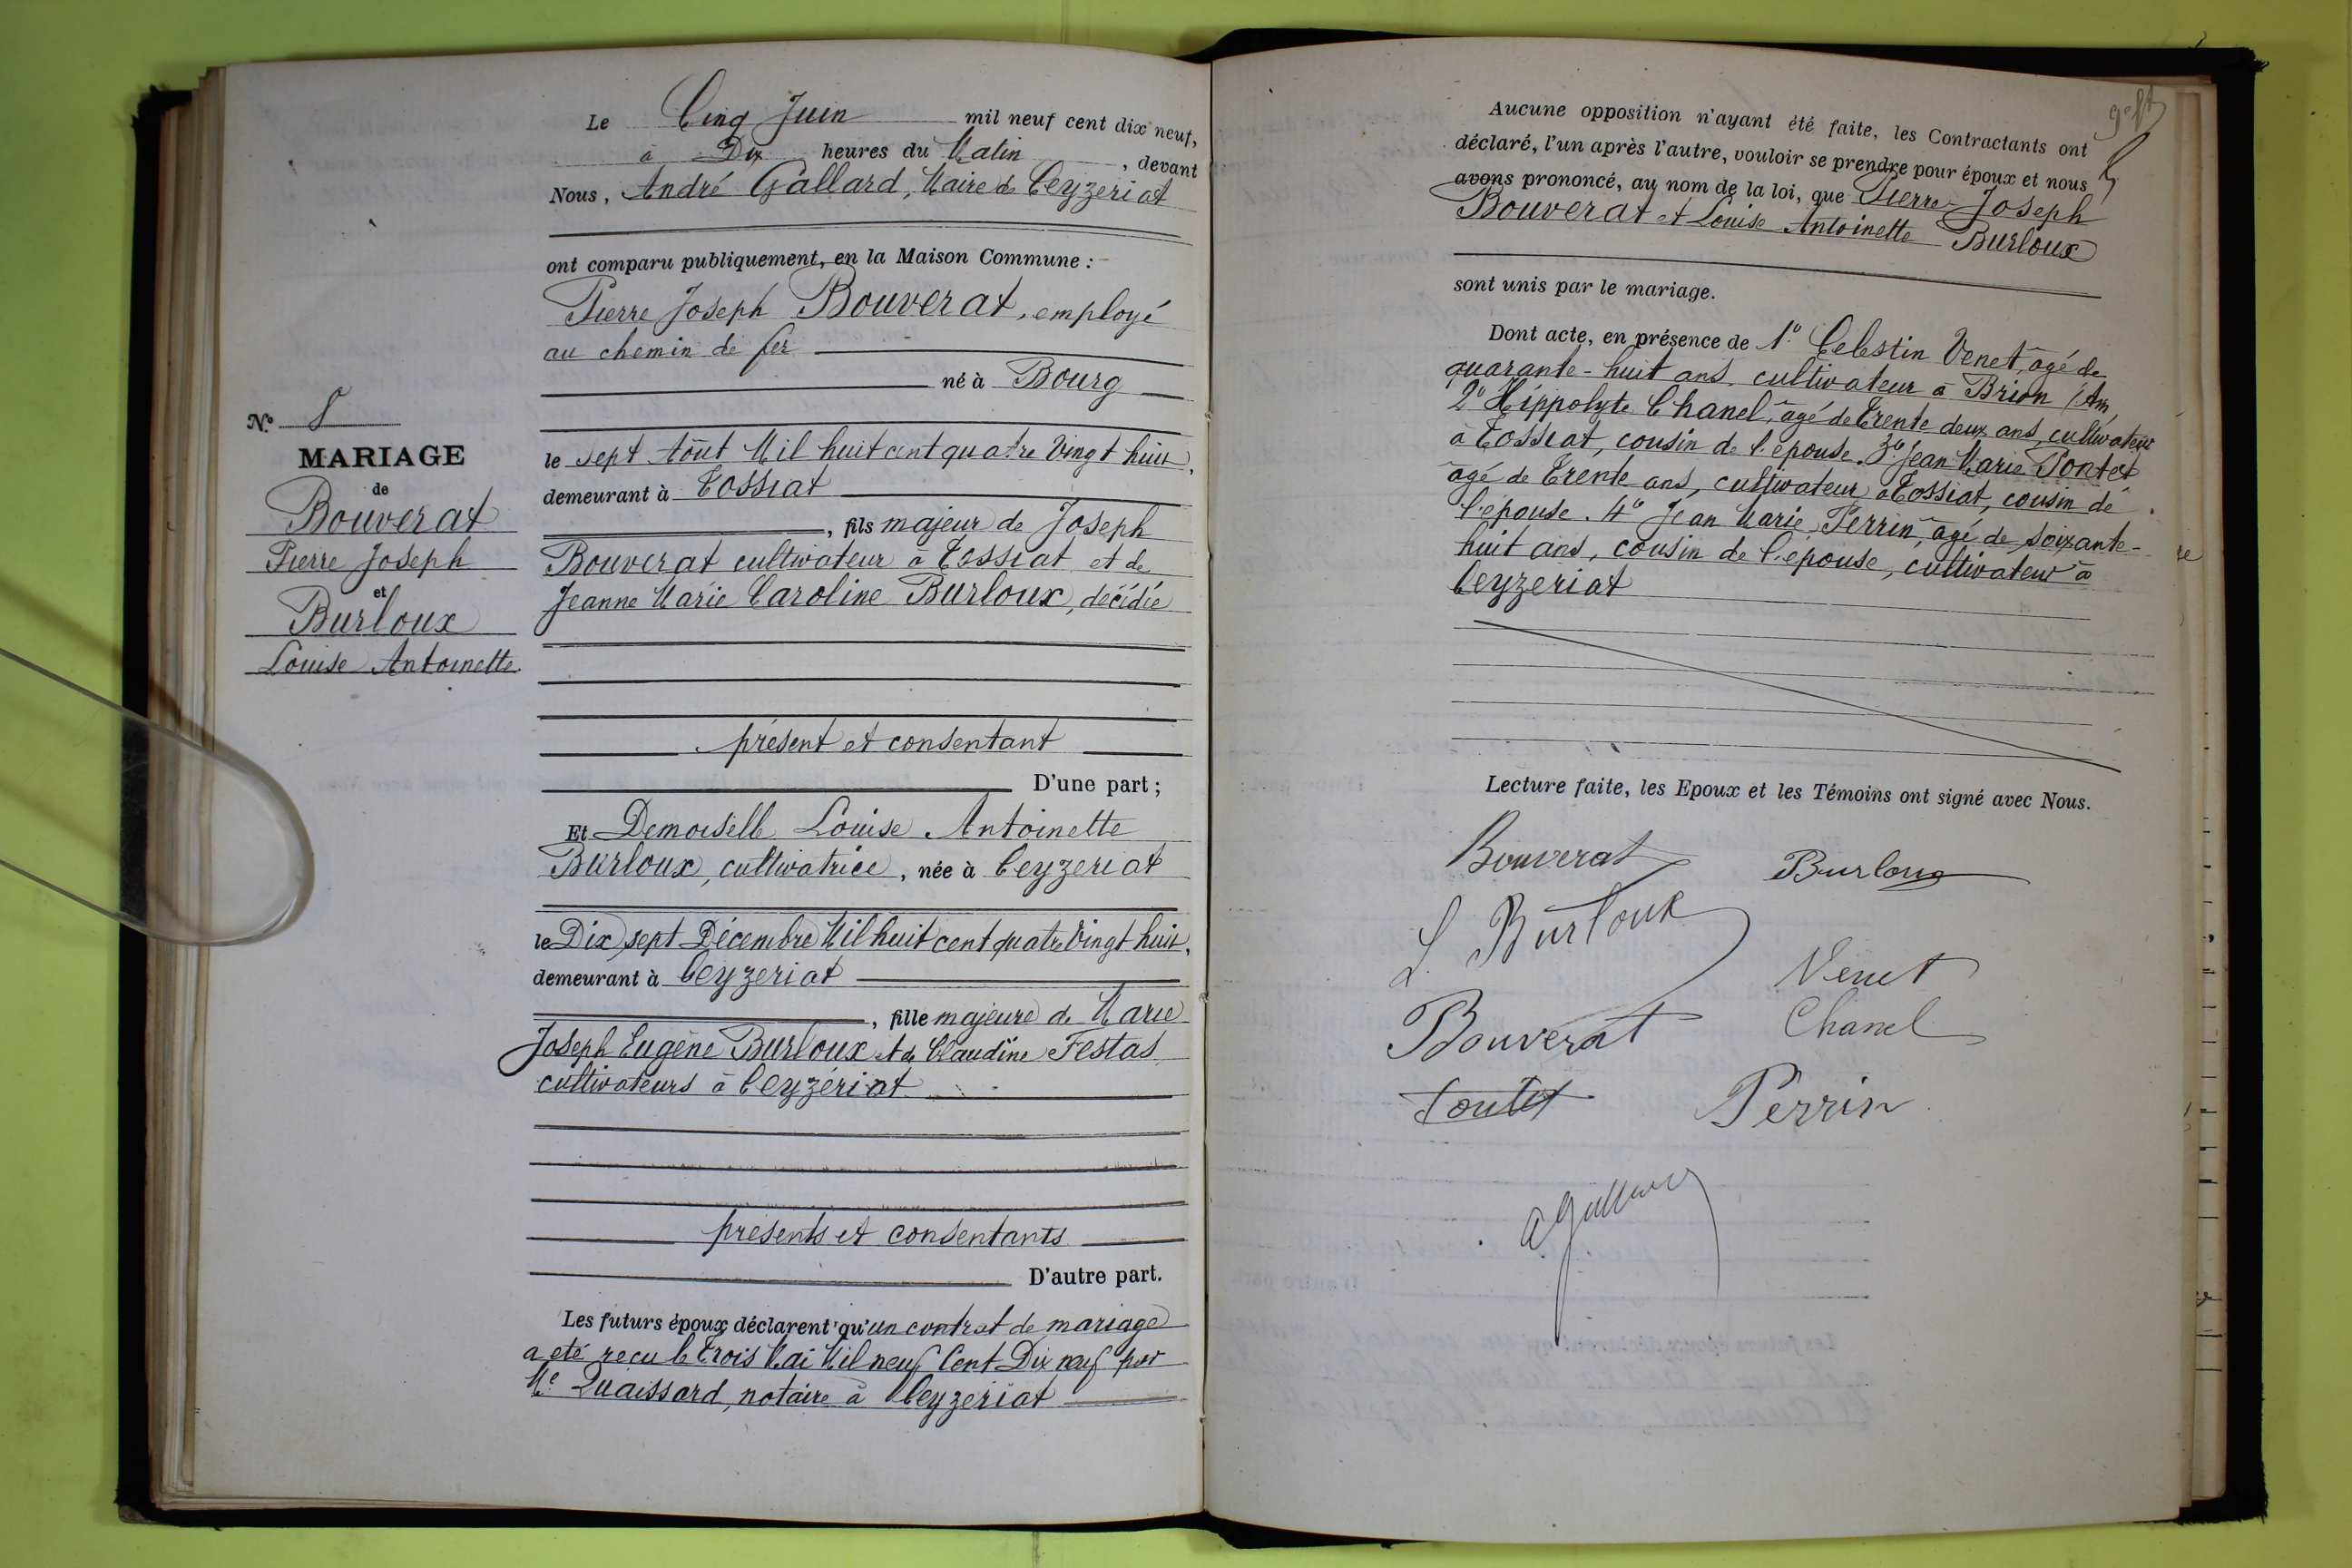 Le Cinq Juin mil neuf cent dix neuf,
à Dix heures du Matin, devant
Nous, André Gallard, Maire de Ceyzeriat
ont comparu publiquement, en la Maison Commune :
Pierre Joseph Bouverat, employé
au chemin de fer
né à Bourg
le sept Août Mil huit cent quatre Vingt huit,
demeurant à Tossiat
, fils majeur de Joseph
Bouverat cultivateur à Tossiat et de
Jeanne Marie Caroline Burloux, décédée
présent et consentant
D'une part ;
Et Demoiselle Louise Antoinette
Burloux, cultivatrice, née à Ceyzeriat
le Dix sept Décembre Mil huit cent quatre Vingt huit,
demeurant à Ceyzeriat
, fille majeure de Marie
Joseph Eugène Burloux et de Claudine Festas
cultivateurs à Ceyzériat
présents et consentants
D'autre part.
Les futurs époux déclarent qu'un contrat de mariage
a eté reçu le Trois Mai Mil neuf Cent Dix neuf par
Me Quaissard, notaire à Ceyzeriat
N.o 8
MARIAGE
de
Bouverat
Pierre Joseph
et
Burloux
Louise Antoinette
Aucune opposition n'ayant été faite, les Contractants ont
déclaré, l'un après l'autre, vouloir se prendre pour époux et nous
avons prononcé, au nom de la loi, que Pierre Joseph
Bouverat et Louise Antoinette Burloux
sont unis par le mariage.
Dont acte, en présence de 1o Celestin Venet, âgé de
quarante-huit ans, cultivateur à Brion (Ain,
2o Hippolyte Chanel, âgé de Trente deux ans, cultivateur
à Tossiat, cousin de l'epouse. 3o Jean Marie Pontet
âgé de Trente ans, cultivateur à Tossiat, cousin de
l'épouse. 4o Jean Marie Perrin, âgé de soixante-
huit ans, cousin de l'epouse, cultivateur à
Ceyzeriat
Lecture faite, les Epoux et les Témoins ont signé avec Nous.
Bouverat Burloux
L. Burloux
Venet
Bouverat Chanel
Pontet Perrin
A Gallard